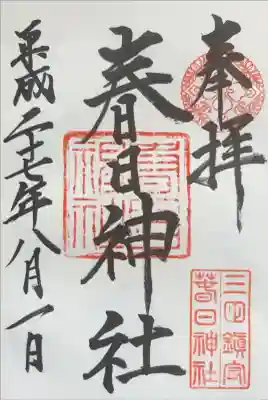 奉拝
春日神社
平成二十七年八月一日
三田鎮守
春日神社